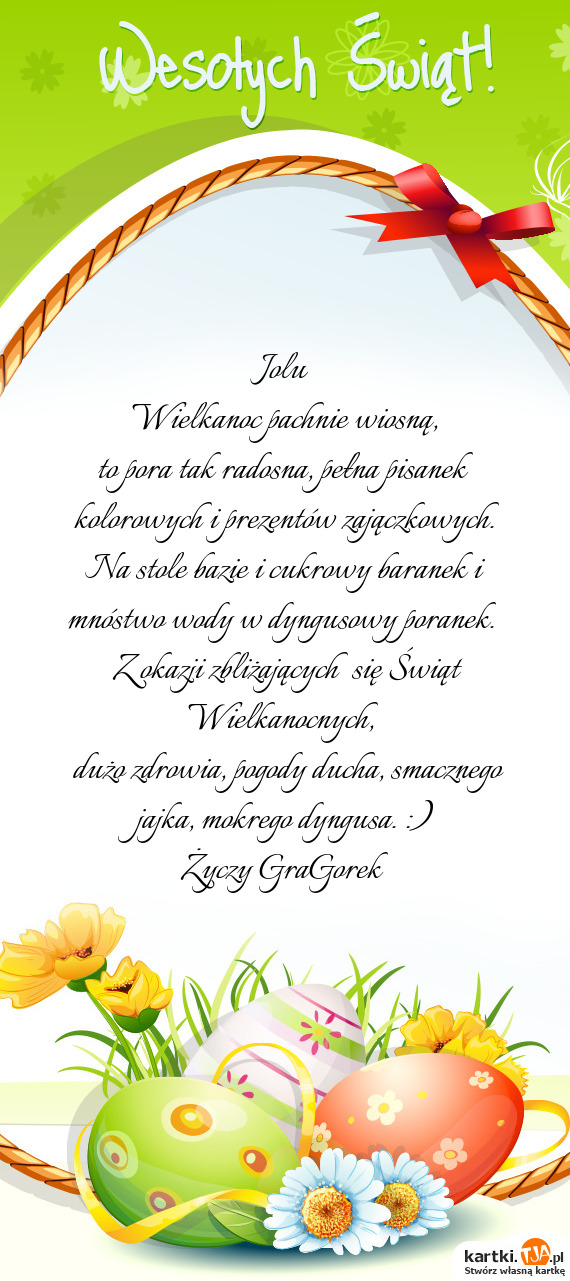 Wesołych Świąt!
Jolu
Wielkanoc pachnie wiosną,
to pora tak radosna, pełna pisanek
kolorowych i prezentów zajączkowych.
Na stole bazie i cukrowy baranek i
mnóstwo wody w dyngusowy poranek.
Z okazji zbliżających się Świąt
Wielkanocnych,
dużo zdrowia, pogody ducha, smacznego
jajka, mokrego dyngusa. :)
Życzy GraGorek
kartki.TJA.pl
Stwórz własną kartkę